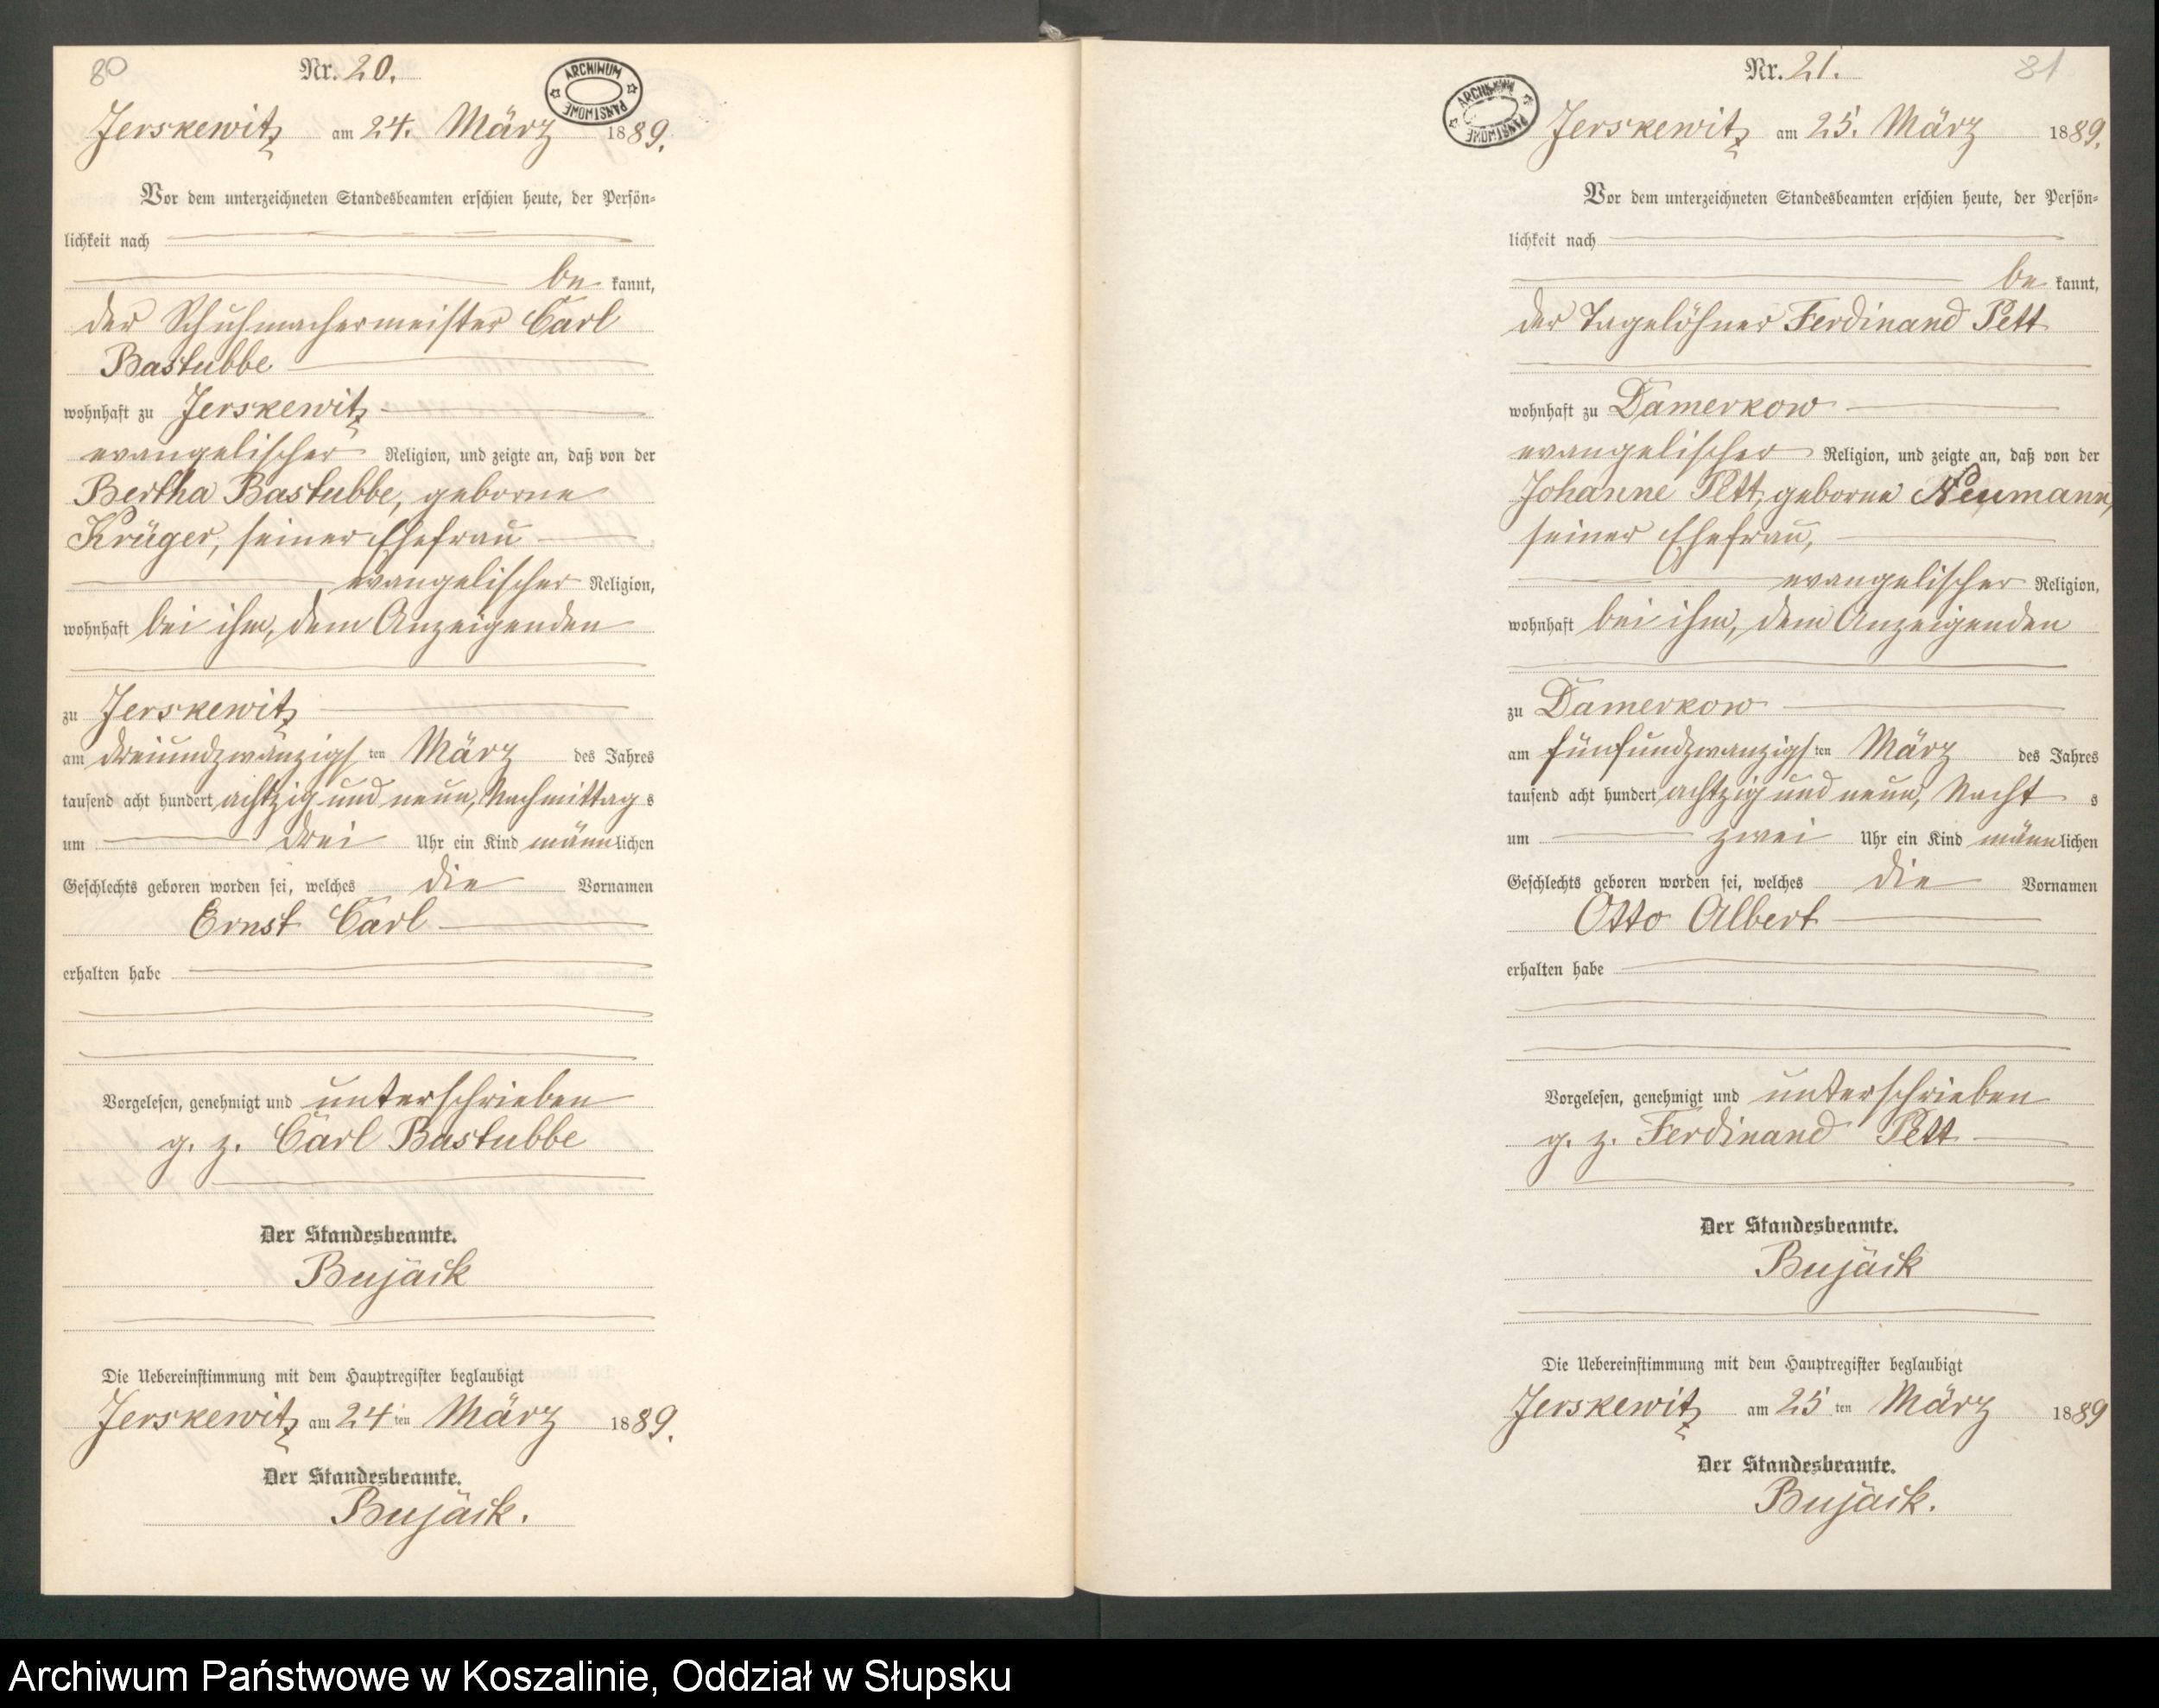 80
Nr. 20.
ARCHIWUM PAŃSTWOWE
Jerskewitz am 24. März 1889.
Vor dem unterzeichneten Standesbeamten erschien heute, der Persön-
lichkeit nach
be kannt,
der Schuhmachermeister Carl
Bastubbe
wohnhaft zu Jerskewitz
evangelischer Religion, und zeigte an, daß von der
Bertha Bastubbe, geborne
Krüger, seiner Ehefrau
evangelischer Religion,
wohnhaft bei ihm, dem Anzeigenden
zu Jerskewitz
am dreiundzwanzigs ten März des Jahres
tausend acht hundert achtzig und neun, Nachmittag s
um drei Uhr ein Kind männlichen
Geschlechts geboren worden sei, welches die Vornamen
Ernst Carl
erhalten habe
Vorgelesen, genehmigt und unterschrieben
g. z. Carl Bastubbe
Der Standesbeamte.
Bujack
Die Uebereinstimmung mit dem Hauptregister beglaubigt
Jerskewitz am 24 ten März 1889.
Der Standesbeamte.
Bujack.
Nr. 21.
81
ARCHIWUM PAŃSTWOWE
Jerskewitz am 25. März 1889.
Vor dem unterzeichneten Standesbeamten erschien heute, der Persön-
lichkeit nach
be kannt,
der Tagelöhner Ferdinand Pett
wohnhaft zu Damerkow
evangelischer Religion, und zeigte an, daß von der
Johanne Pett, geborne Neumann,
seiner Ehefrau,
evangelischer Religion,
wohnhaft bei ihm, dem Anzeigenden
zu Damerkow
am fünfundzwanzigs ten März des Jahres
tausend acht hundert achtzig und neun, Nacht s
um zwei Uhr ein Kind männlichen
Geschlechts geboren worden sei, welches die Vornamen
Otto Albert
erhalten habe
Vorgelesen, genehmigt und unterschrieben
g. z. Ferdinand Pett
Der Standesbeamte.
Bujack
Die Uebereinstimmung mit dem Hauptregister beglaubigt
Jerskewitz am 25 ten März 1889
Der Standesbeamte.
Bujack.
Archiwum Państwowe w Koszalinie, Oddział w Słupsku